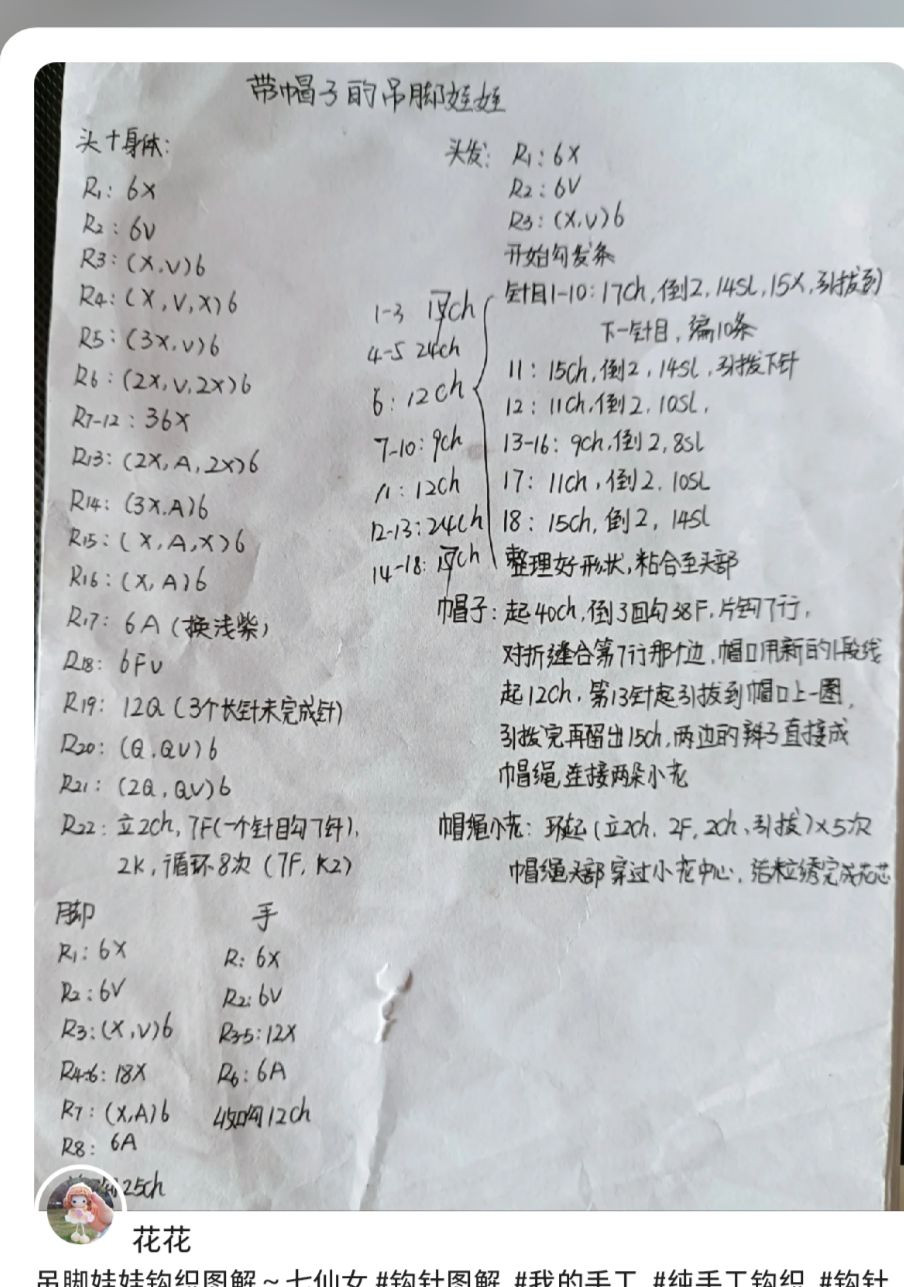 带帽子的吊脚娃娃
头+身体:
R1: 6X
R2: 6V
R3: (X,V)6
R4: (X,V,X)6
R5: (3X,V)6
R6: (2X,V,2X)6
R7-12: 36X
R13: (2X,A,2X)6
R14: (3X.A)6
R15: (X,A,X)6
R16: (X,A)6
R17: 6A (换浅紫)
R18: 6FV
R19: 12Q (3个长针未完成针)
R20: (Q.QV)6
R21: (2Q,QV)6
R22: 立2ch, 7F(一个针目勾7针),
2K, 循环8次 (7F, K2)
脚
R1: 6X
R2: 6V
R3: (X,V)6
R4-6: 18X
R7: (X,A)6
R8: 6A
25ch
手
R: 6X
R2: 6V
R3-5: 12X
R6: 6A
12ch
头发: R1: 6X
R2: 6V
R3: (X,V)6
开始勾发条
针目1-10: 17ch,倒2,14SL,15X,引拔到
下一针目, 编10条
11: 15ch,倒2, 14SL,引拔下针
12: 11ch,倒2, 10SL,
13-16: 9ch,倒2,8SL
17: 11ch,倒2. 10SL
18: 15ch, 倒2, 14SL
整理好形状,粘合至头部
1-3 ch
4-5 24ch
6: 12ch
7-10: 9ch
11: 12ch
12-13: 24ch
14-18: ch
帽子: 起40ch,倒3回勾38F,片钩7行,
对折缝合第7行那个边,帽口用新的1段线
起12ch, 第13针起引拔到帽口上一圈,
引拔完再留出15ch,两边的辫子直接成
帽绳,连接两朵小花
帽绳小花: 环起(立2ch, 2F, 2ch、引拔)×5次
帽绳头部穿过小花中心, 结粒绣完成花芯
花花
吊脚娃娃钩织图解~七仙女 #钩针图解 #我的手工 #纯手工钩织 #钩针